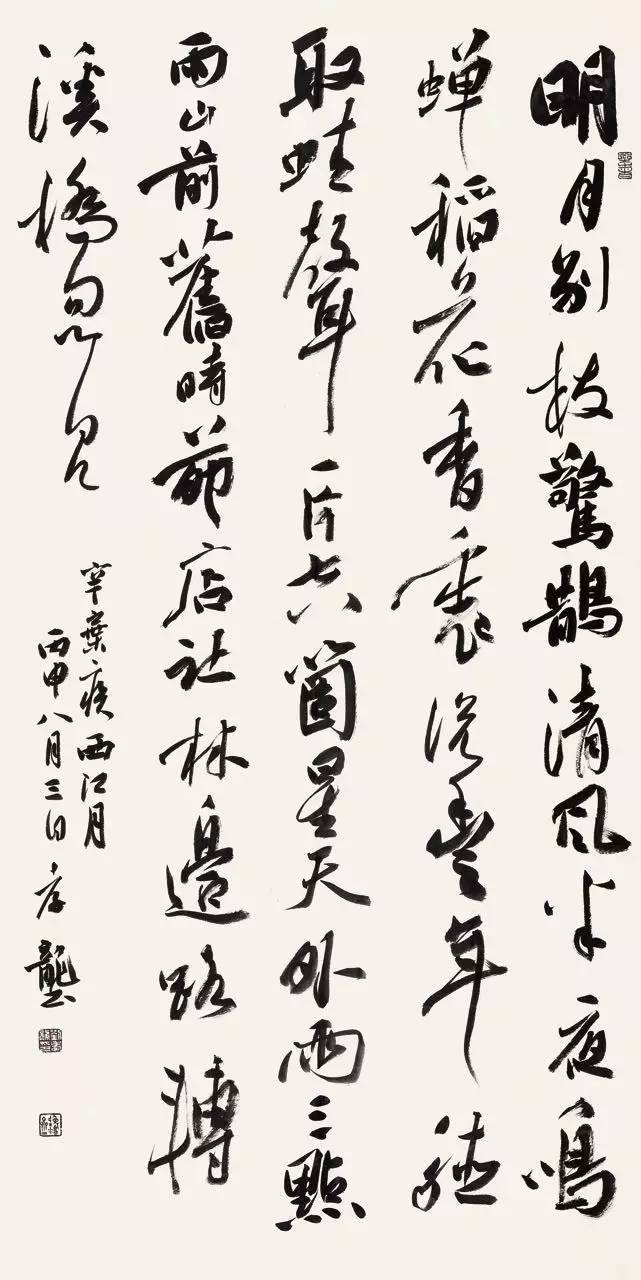 明月别枝驚鵲清風半夜鳴
蝉稻花香裏说豐年聽
取蛙聲一片七八箇星天外兩三點
雨山前舊時茆店社林邊路轉
溪橋忽見
辛棄疾西江月
丙申八月三日